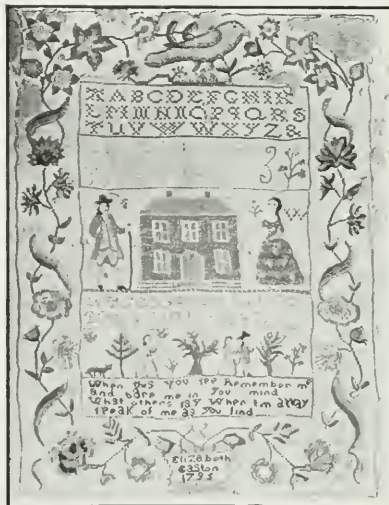 ABCDEFGHIK
TUVWXYZ&
When this you see Remember me
and bare me in you mind
What others say When Im away
speak of me as you find
Elizabeth
Easton
1795